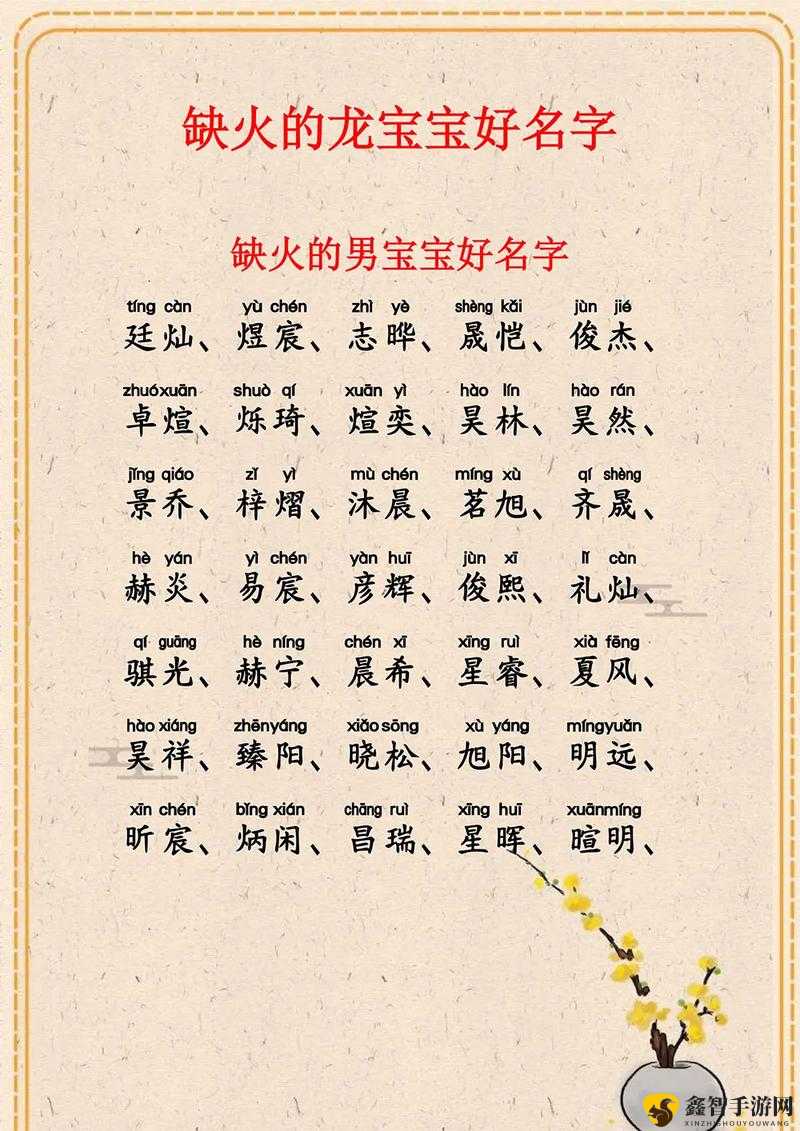 缺火的龙宝宝好名字
缺火的男宝宝好名字
tíng càn yù chén zhì yè shèng kǎi jùn jié
廷灿、煜宸、志晔、晟恺、俊杰、
zhuó xuān shuò qí xuān yì hào lín hào rán
卓煊、烁琦、煊奕、昊林、昊然、
jǐng qiáo zǐ yì mù chén míng xù qí shèng
景乔、梓熠、沐晨、茗旭、齐晟、
hè yán yì chén yàn huī jùn xī lǐ càn
赫炎、易宸、彦辉、俊熙、礼灿、
qí guāng hè níng chén xī xīng ruì xià fēng
骐光、赫宁、晨希、星睿、夏风、
hào xiáng zhēn yáng xiǎo sōng xù yáng míng yuǎn
昊祥、臻阳、晓松、旭阳、明远、
xīn chén bǐng xián chāng ruì xīng huī xuān míng
昕宸、炳闲、昌瑞、星晖、暄明、
鑫智手游网
XINZHISHOUYOUWANG